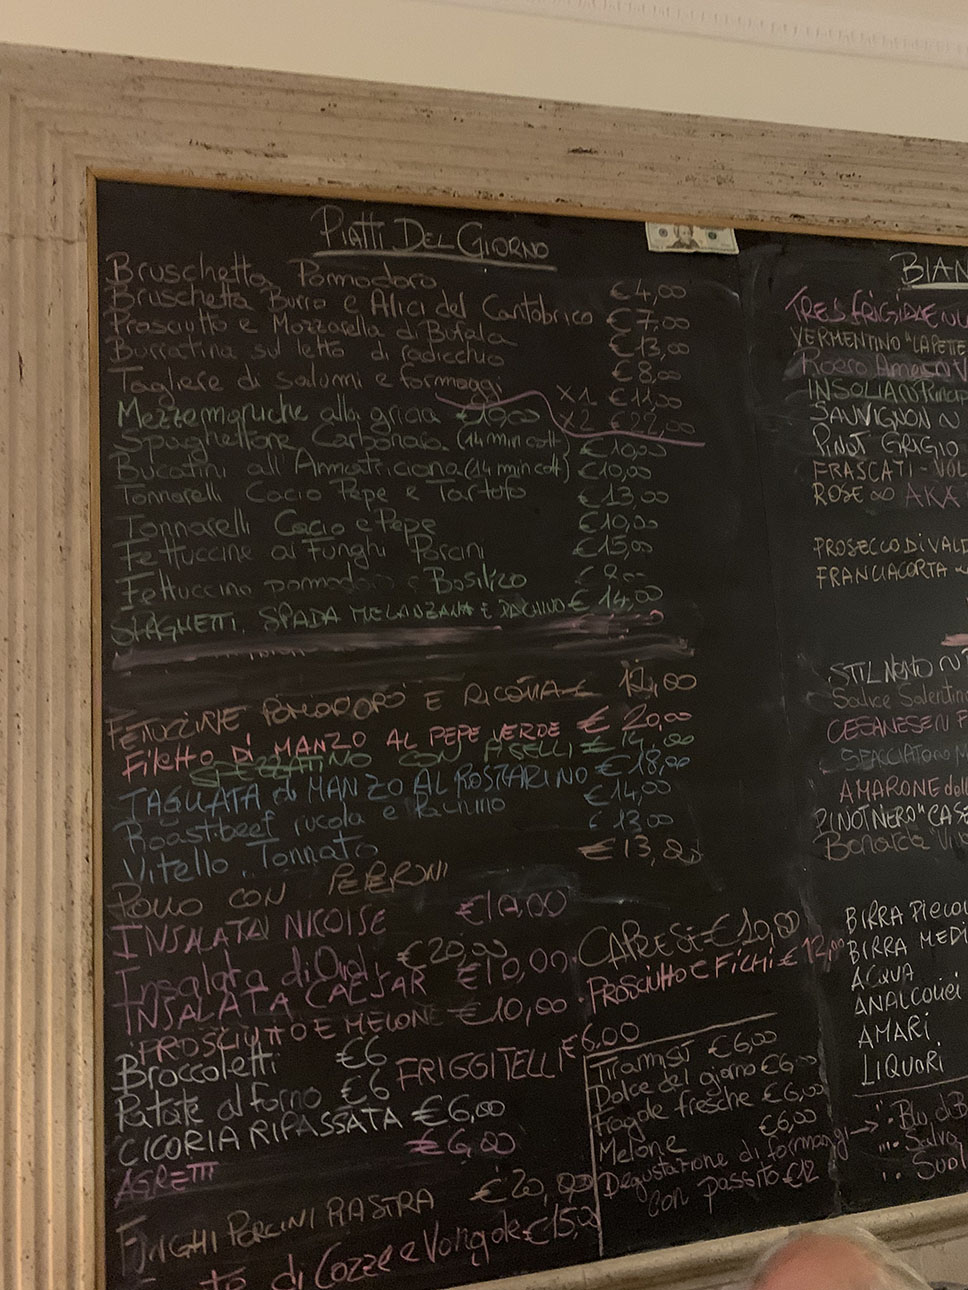 PIATTI DEL GIORNO
Bruschetta Pomodoro €4,00
Bruschetta Burro e Alici del Cantabrico €7,00
Prosciutto e Mozzarella di Bufala €13,00
Burratina sul letto di radicchio €8,00
Tagliere di salumi e formaggi X1 €11,00
X2 €22,00
Mezzemaniche alla gricia €10,00
Spaghettone Carbonara (14 min cott) €10,00
Bucatini all'Amatriciana (14 min cott) €10,00
Tonnarelli Cacio Pepe e Tartufo €13,00
Tonnarelli Cacio e Pepe €10,00
Fettuccine ai Funghi Porcini €15,00
Fettuccine pomodoro e Basilico
SPAGHETTI. SPADA MELANZANA E PACHINO €14,00
FETTUCCINE POMODORO E RICOTTA
Filetto DI MANZO AL PEPE VERDE € 20,00
SPEZZATINO CON PISELLI
TAGLIATA di MANZO AL ROSMARINO €18,00
Roastbeef rucola e Pachino €14,00
Vitello Tonnato 13,00
POLLO CON PEPERONI
INSALATA NICOISE
Insalata di €20,00
INSALATA CAESAR €10,00
PROSCIUTTO E MELONE €10,00
Broccoletti €6
Patate al forno €6
CICORIA RIPASSATA €6,00
AGRETTI €6,00
FUNGHI PORCINI PIASTRA
di Cozze e Vongole €15,
CAPRESE
PROSCIUTTO E FICHI € 12,00
FRIGGITELLI €6.00
Tiramisù €6,00
Dolce del giorno €6,00
Fragole fresche €6,00
Melone €6,00
Degustazione di formaggi
con passito €12
BIAN
VERMENTINO
Roero
INSOLIA
SAUVIGNON
PINOT GRIGIO
FRASCATI
ROSE AKA
PROSECCO DI VALD
FRANCIACORTA
Salice Salentino
CESANESE
AMARONE
PINOT NERO "CASE
Bonarda
BIRRA PICCOL
BIRRA MEDI
ACQUA
ANALCOLICI
AMARI
LIQUORI
Blu di B
Salva